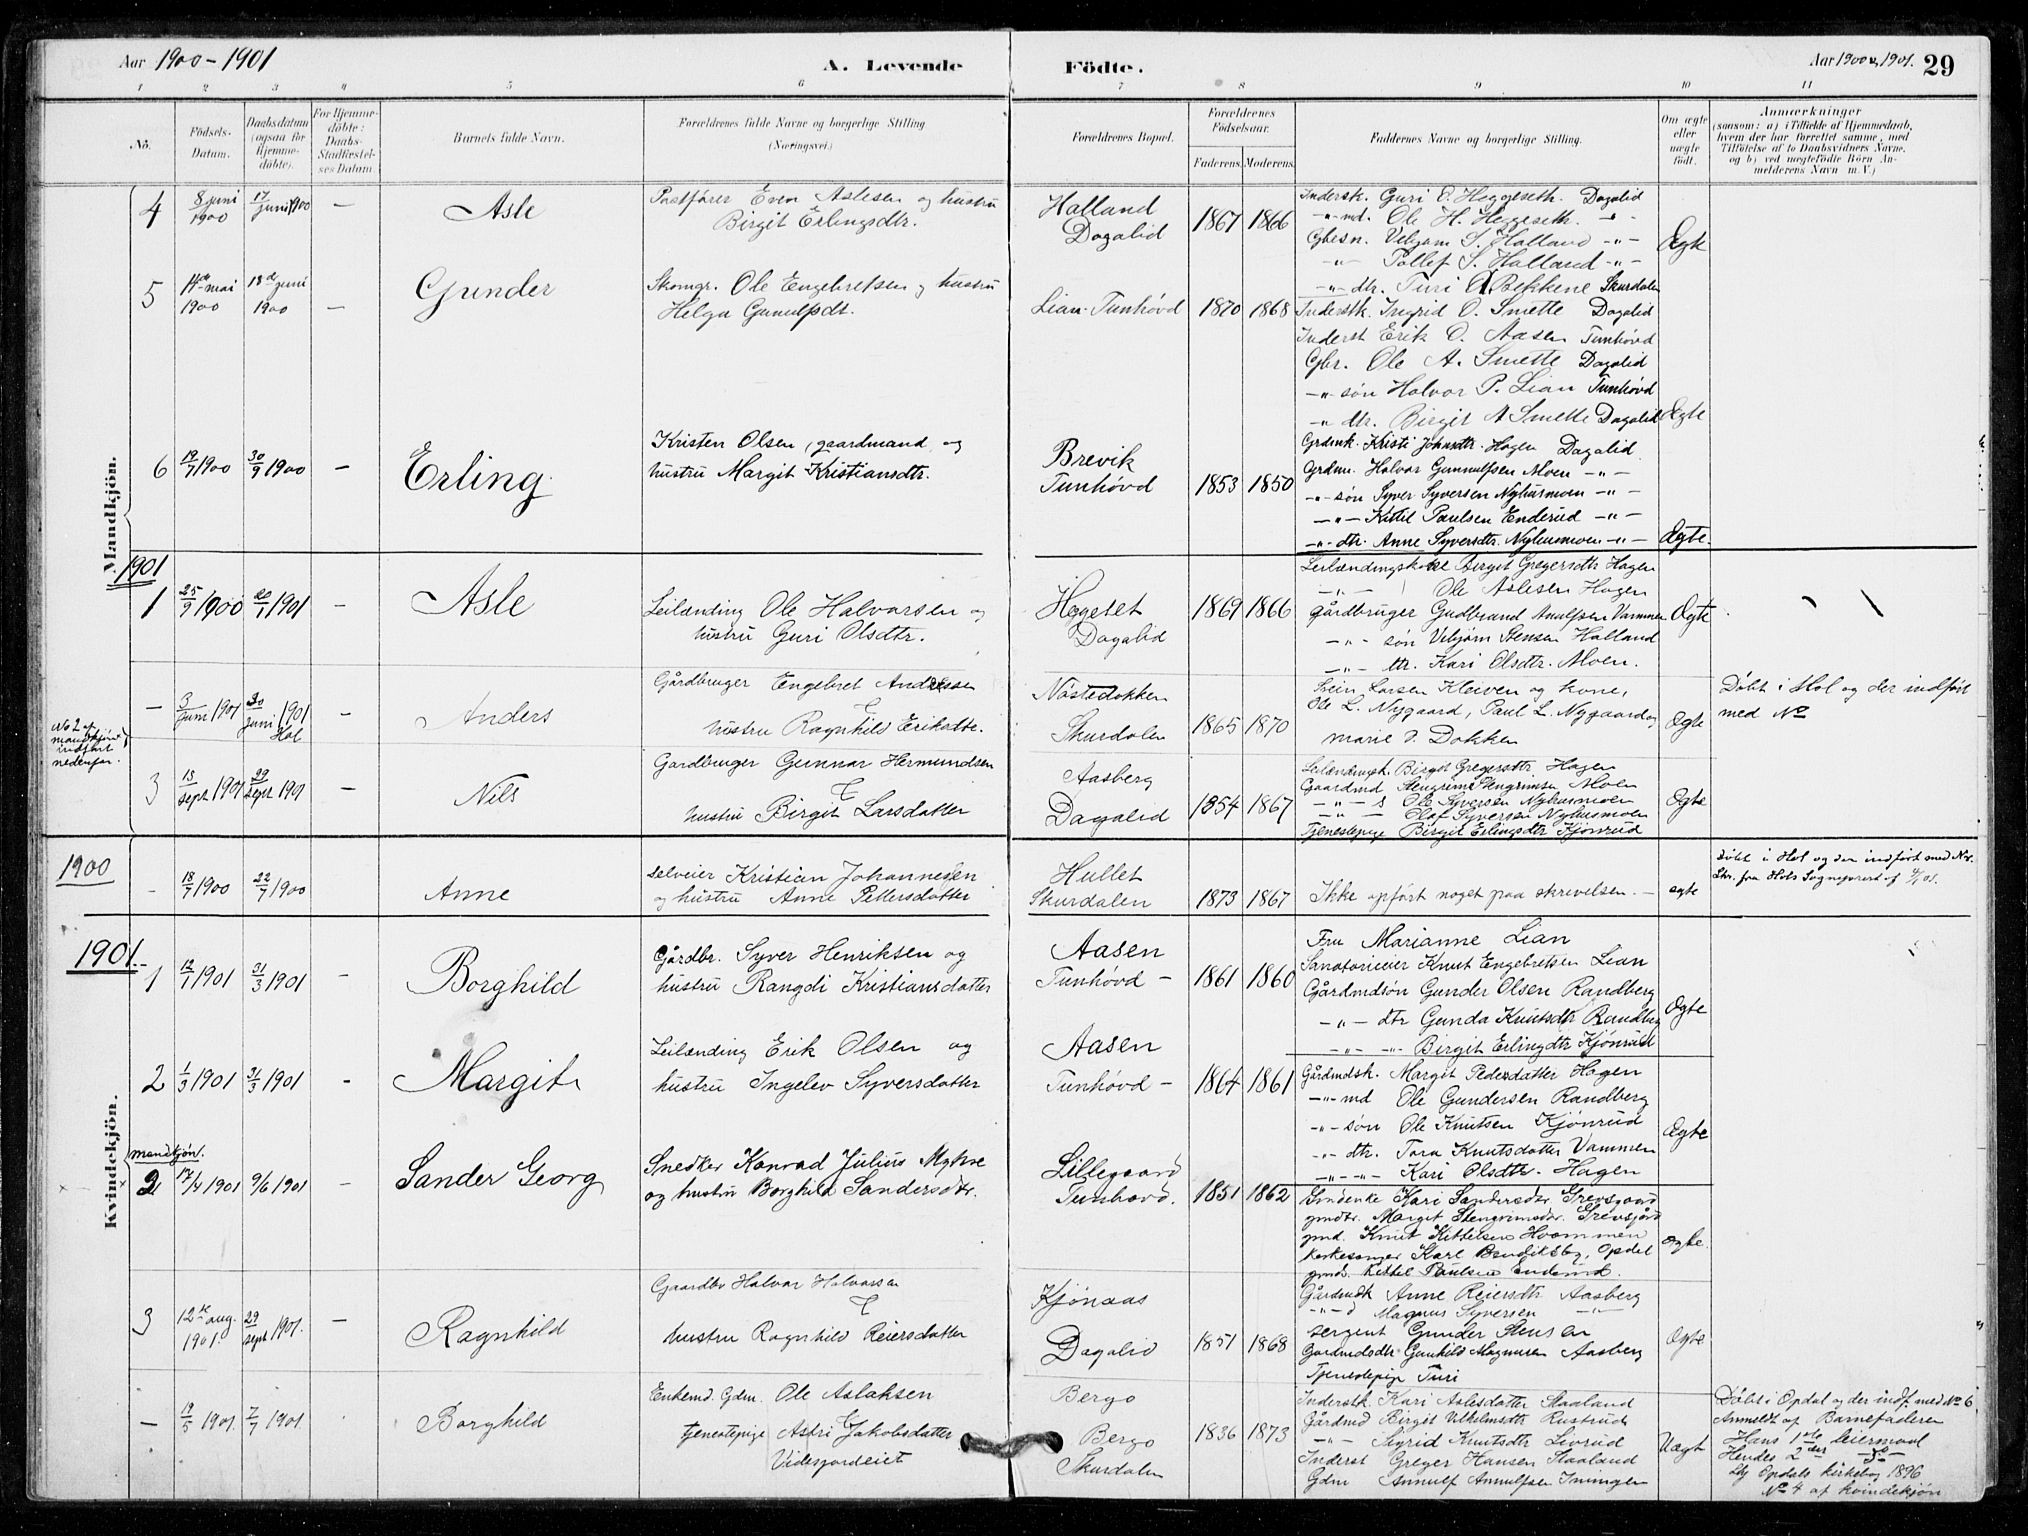 Aar 1900-1901
A. Levende
Födte.
Aar 1900 & 1901. 29
1 2 3 4 5 6 7 8 9 10 11
No.
Födsels-
Datum.
Daabsdatum
(ogsaa for
Hjemme-
döbte).
For Hjemme-
döbte:
Daabs-
Stadfæstel-
ses Datum.
Barnets fulde Navn.
Forældrenes fulde Navne og borgerlige Stilling
(Næringsvei.)
Forældrenes Bopæl.
Forældrenes
Födselsaar.
Faderens. Moderens.
Faddernes Navne og borgerlige Stilling.
Om ægte
eller
uægte
født.
Anmærkninger
(saasom: a) i Tilfælde af Hjemmedaab,
hvem der har forrettet samme, med
Tilföielse af to Daabsvidners Navne,
og b) ved uægtefödte Börn An-
melderens Navn m. V.)
Mandkjön.
4 8 juni 1900 17 juni 1900 — Asle
Postfører Even Aslesen og hustru
Birgit Erlingsdtr.
Halland
Dagalid
1867 1866
Inderstk. Guri E. Heggeseth. Dagalid
-"- md. Ole H. Heggeseth. -"-
Gbesn. Vebjørn S. Halland -"-
-"- Tollef S. Halland -"-
-"- dtr. Turi O. Bekkene Skurdalen
Ægte
5 14de mai 1900 18de juni 1900 — Gunder
Skomgr. Ole Engebretsen og hustru
Helga Gunulfsdt.
Lian. Tunhövd
1870 1868
Inderstk. Ingrid O. Smette Dagalid
Inderst Erik O. Aasen Tunhövd
Gbr. Ole A. Smette Dagalid
-"- søn Halvor P. Lian Tunhövd
-"- dtr. Birgit A Smette Dagalid
Ægte
6 19/7 1900 30/9 1900 — Erling
Kristen Olsen, gaardmand og
hustru Margit Kristiansdtr.
Brevik
Tunhövd
1853 1850
Grdenk. Kristi Johnsdtr. Hagen Dagalid
Grdm. Halvor Gunnulfsen Moen -"-
-"- søn Syver Syversen Nyhusmoen -"-
-"- Kittil Paulsen Enderud -"-
-"- dtr. Anne Syversdtr. Nyhusmoen -"-
Ægte.
1901
1 25/9 1900 20/1 1901 — Asle
Leilænding Ole Halvorsen og
hustru Guri Olsdtr.
Hegetet
Dagalid
1869 1866
Leilændingskone Birgit Gregersdtr Hagen
-"- Ole Aslesen Hagen
Gårdbruger Gudbrand Anulfsen Vammen
-"- søn Vebjørn Stensen Halland
-"- dtr. Kari Olsdtr. Moen.
Ægte
No 2 af
mandkjøn
indført
nedenfor.
— 3 juni 1901 30 juni 1901 Hol — Anders
Gårdbruger Engebret Andersen
hustru Ragnhild Eriksdtr.
Nöstedokken
Skurdalen
1865 1870
Svein Larsen Kleiven og kone,
Ole L. Nygaard, Paul L. Nygaard og
Marie O. Dokken
Ægte
Döbt i Hol og der indfört
med No
3 13 sept 1901 29 sept 1901 — Nils
Gardbruger Gunnar Hermundsen
hustru Birgit Larsdatter
Aasberg
Dagalid
1854 1867
Leilændingsk. Birgit Gregersdtr. Hagen
Gaardmd Stengrim Stengrimsen Moen
-"- s Ole Syversen Nyhusmoen
-"- Olaf Syversen Nyhusmoen
Tjenestepige Birgit Erlingsdtr Kjönrud
Ægte
1900
- 18/7 1900 22/7 1900 Anne
Selveier Kristian Johannessen
og hustru Anne Pettersdatter
Hullet
Skurdalen
1873 1867
Ikke opført noget paa skrivelsen. —
ægte
Döbt i Hol og der indført med No.
Skr. fra Hols Sogneprest af 4/1 01.
Kvindekjön.
1901.
1 12/1 1901 31/3 1901 - Borghild
Gårdbr. Syver Henriksen og
hustru Rangdi Kristiansdatter
Aasen
Tunhövd —
1861 1860
Fru Marianne Lian
Sanatorieier Knut Engebretsen Lian
Gårdmdsön Gunder Olsen Randberg
-"- dtr Gunda Knutsdtr Randberg
-"- -"- Birgit Erlingdtr Kjönrud
Ægte
2 1/3 1901 31/3 1901 - Margit
Leilænding Erik Olsen og
hustru Ingelev Syversdatter
Aasen
Tunhövd —
1864 1861
Gårdmdsk. Margit Pedersdatter Hagen
-"- md Ole Gundersen Randberg
-"- søn Ole Knutsen Kjönrud
-"- dtr. Tora Knutsdatter Vammen
-"- -"- Kari Olsdtr. Hagen
Ægte
mandkjøn.
2 17/4 1901 9/6 1901 Sander Georg
Snedker Konrad Julius Myhre
og hustru Borghild Sandersdtr.
Lillegaard
Tunhovd.
1851 1862
Gmdenke Kari Sandersdtr. Grevsgaard
gmdtr. Margit Stengrimsdtr. Grevsgård
gmd. Knut Kittelsen Hvammen
Kirkesanger Karl Bendiksby, Opdal
gmd. Kittel Paulsen Enderud.
Ægte.
3 12te aug. 1901. 29 sept 1901. — Ragnhild
Gaardbr Halvor Halvorsen
hustru Ragnhild Reiersdatter
Kjönaas
Dagalid
1851 1868
Gårdmdk Anne Reiersdtr Aasberg
-"- d Magnus Syversen -"-
Sergent Gunder Stensen
Gardmdsdtr Gunhild Magnusen Aasberg
Tjenestepige Turi
Ægte
— 19/5 1901. 7/7 1901 Borghild
Enkemd. Gdm. Ole Aslaksen
tjenestepige Astri Jakobsdatter
Videsjordeiet
Bergo
Bergo
Skurdalen
1836 1873
Inderstk. Kari Aslesdatter Skaaland
Gårdmd Birgit Vilhelmsdtr Rustrud
-"- Sigrid Knutsdtr Livrud
Inderst Greger Hansen Skaaland
Gdm Annulf Annulfsen Inningen
Uægt
Döbt i Opdal og der indf. med No 6
Anmeldt af Barnefaderen
Hans 1ste Leiermaal
Hendes 2den do
Se Opdals kirkebog 1896
No 4 af kvindekjön